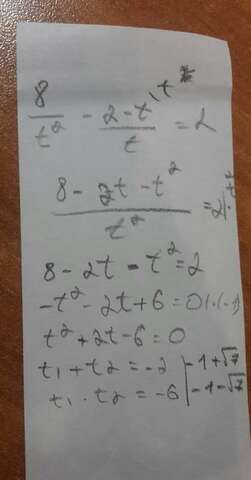 8/t² - (2-t)/t = 2
(8 - 2t - t²)/t² = 2 |· t²
8 - 2t - t² = 2
-t² - 2t + 6 = 0 |·(-1)
t² + 2t - 6 = 0
t₁ + t₂ = -2 | -1+√7
t₁ · t₂ = -6 | -1-√7